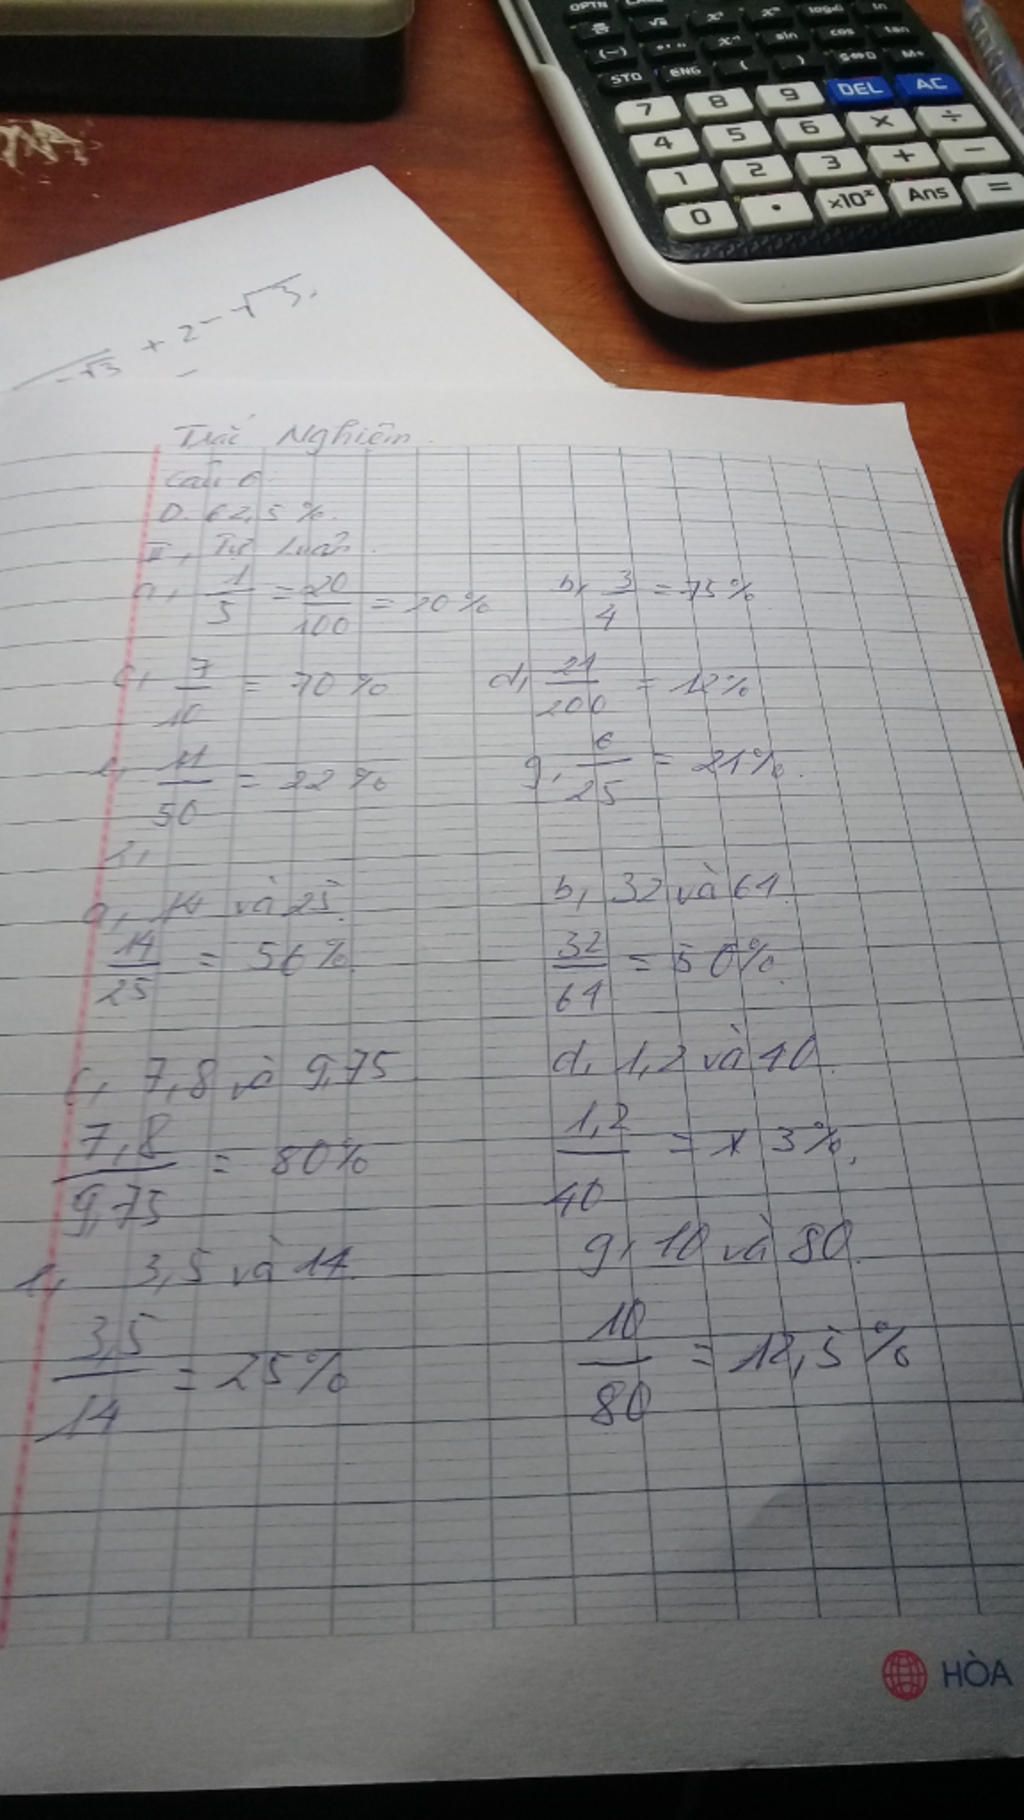 OPTN
√▫ x² xⁿ log▫▫ ln
(−) °'" x⁻¹ sin cos tan
STO ENG ( ) S⇔D M+
7 8 9 DEL AC
4 5 6 × ÷
1 2 3 + −
0 . ×10ˣ Ans =
-√3 + 2 - √3.
Trắc Nghiệm.
Câu 6
D. 62,5%.
II, Tự Luận.
a, 1/5 = 20/100 = 20% b, 3/4 = 75%
c, 7/10 = 70% d, 24/200 = 12%
e, 11/50 = 22% g, 6/25 = 24%.
2,
a, 14 và 25. b, 32 và 64
14/25 = 56% 32/64 = 50%.
c, 7,8 và 9,75 d, 1,2 và 40.
7,8/9,75 = 80% 1,2/40 = 3%.
e, 3,5 và 14. g, 10 và 80.
3,5/14 = 25% 10/80 = 12,5%
HÒA